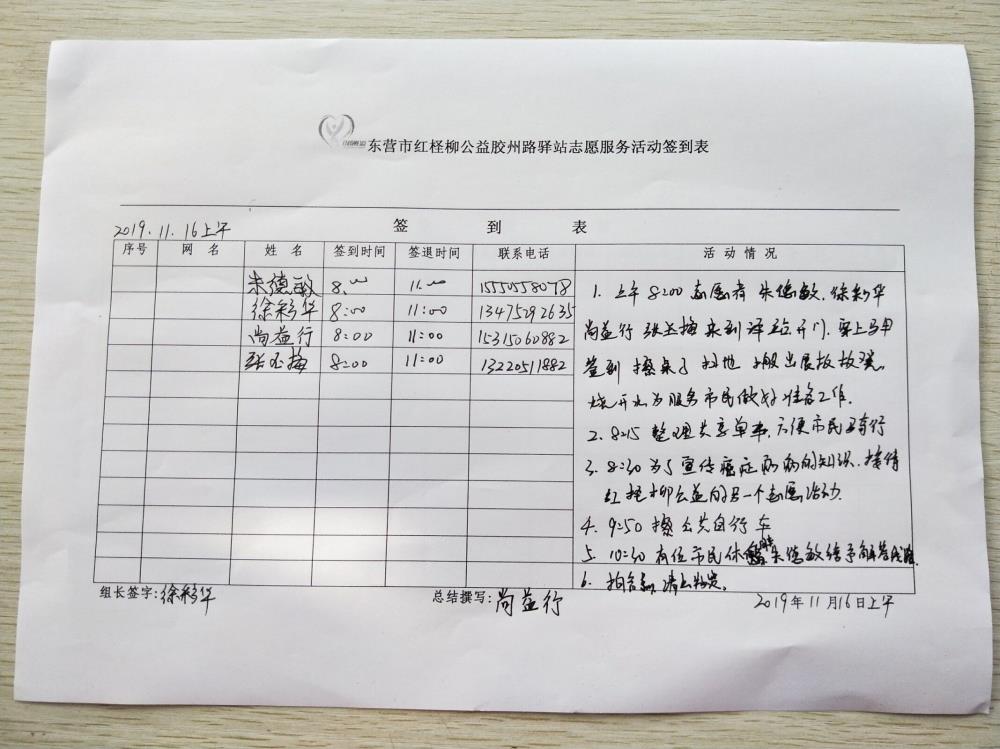 东营市红柽柳公益胶州路驿站志愿服务活动签到表
签 到 表
2019.11.16上午
序号 网 名 姓 名 签到时间 签退时间 联系电话 活 动 情 况
朱德敏 8:00 11:00 15550558078
徐彩华 8:00 11:00 13475292635
尚益行 8:00 11:00 15315060882
张丕梅 8:00 11:00 13220511882
1. 上午8:00志愿者 朱德敏、徐彩华
尚益行 张丕梅来到驿站开门、穿上马甲
签到 擦桌子 扫地 搬出展板
烧开水为服务市民做好准备工作.
2. 8:15 整理共享单车,方便市民出行
3. 8:30 为了宣传癌症疾病的知识、接待
红柽柳公益的另一个志愿活动.
4. 9:50 擦公共自行车
5. 10:30 有位市民 朱德敏给予
6. 拍合影、清点物资。
组长签字:徐彩华 总结撰写:尚益行 2019年11月16日上午